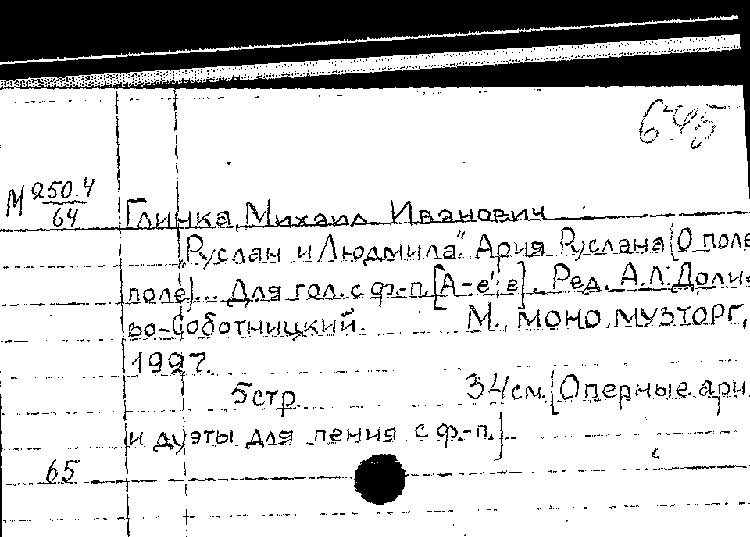 645
М 250.4
64
Глинка, Михаил Иванович
„Руслан и Людмила". Ария Руслана [О поле
поле]... Для гол. с ф.-п. [А-е'; в]. Ред. А.Л. Доли-
во-Соботницкий. М., МОНО, МУЗТОРГ,
1927.
5 стр 34 см. [Оперные ари
и дуэты для пения с ф.-п.]
65